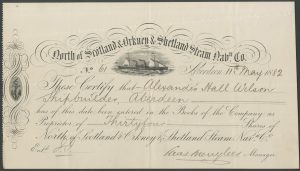 North of Scotland & Orkney & Shetland Steam Navn. Co.
No. 61 Aberdeen 11th May 1882
These Certify that Alexander Hall Wilson
Shipbuilder, Aberdeen
has of this date been entered in the Books of the Company as
Proprietor of Thirtyfour Shares of
North of Scotland & Orkney & Shetland Steam Navn. Co.
Entd.
Chas Merrylees Manager